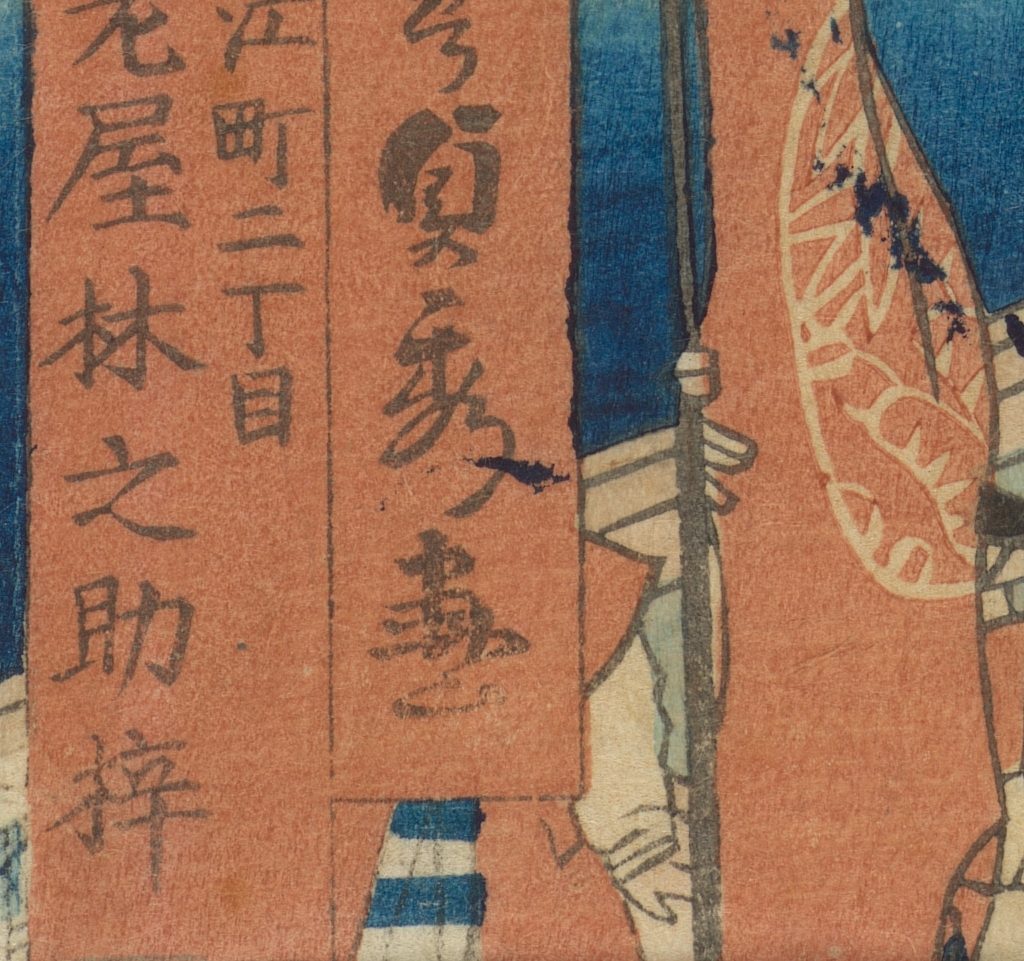 貞秀画
江町二丁目
老屋林之助梓